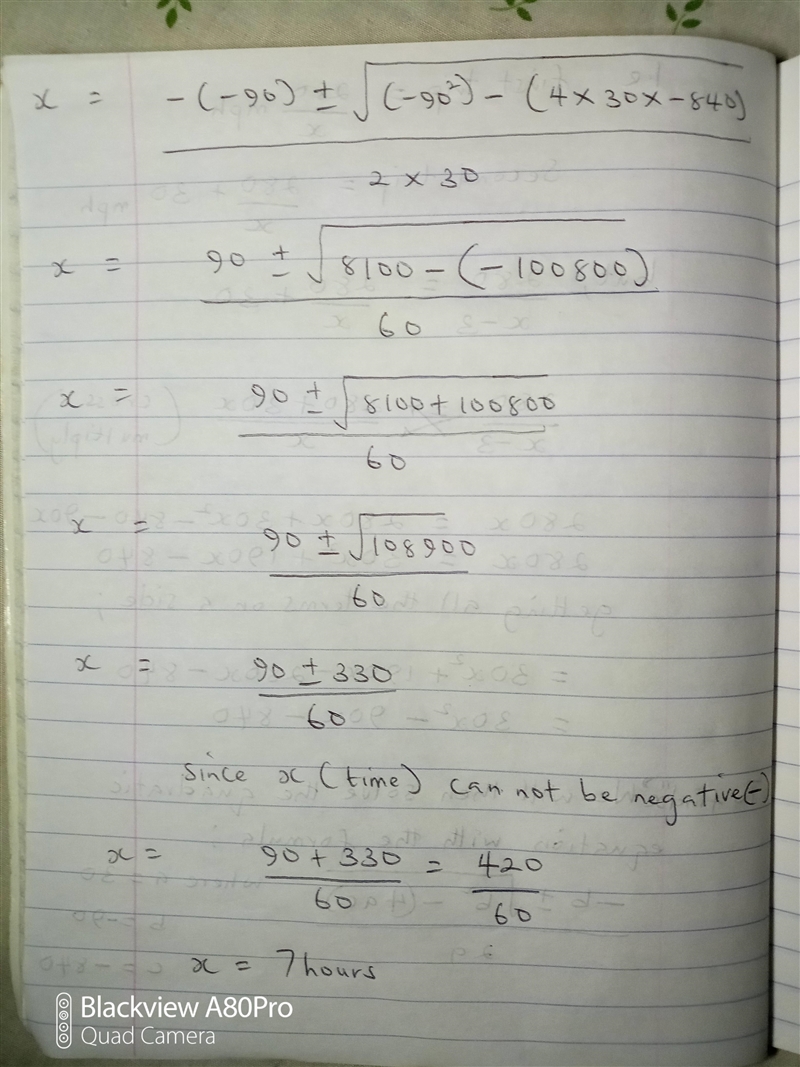 x = -(-90) ± √(-90²) - (4 x 30 x -840)
2 x 30
x = 90 ± √8100 - (-100800)
60
x = 90 ± √8100 + 100800
60
x = 90 ± √108900
60
x = 90 ± 330
60
Since x (time) can not be negative(-)
x = 90 + 330 = 420
60 60
x = 7 hours
Blackview A80Pro
Quad Camera